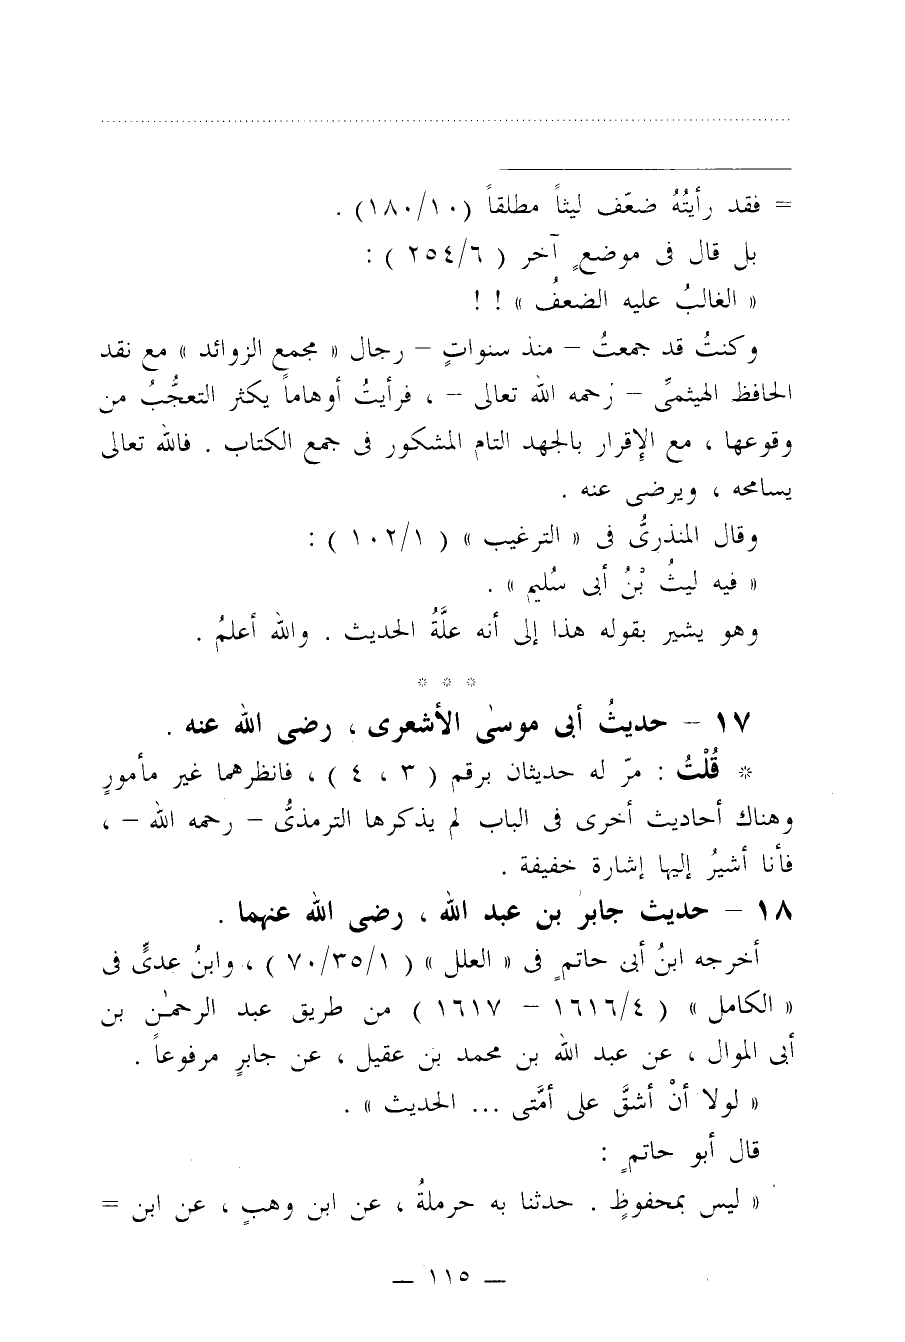 = فقد رأيتُهُ ضعّف ليثاً مطلقاً (١٨٠/١٠) .
بل قال فى موضعٍ آخر ( ٢٥٤/٦ ) :
« الغالبُ عليه الضعفُ » ! !
وكنتُ قد جمعتُ – منذ سنواتٍ – رجال « مجمع الزوائد » مع نقد
الحافظ الهيثمىِّ – رحمه الله تعالى – ، فرأيتُ أوهاماً يكثر التعجُّبُ من
وقوعها ، مع الإقرار بالجهد التام المشكور فى جمع الكتاب . فالله تعالى
يسامحه ، ويرضى عنه .
وقال المنذرىُّ فى « الترغيب » ( ١٠٢/١ ) :
« فيه ليثُ بْنُ أبى سُليم » .
وهو يشير بقوله هذا إلى أنه علَّةُ الحديث . والله أعلمُ .
* * *
١٧ – حديثُ أبى موسىٰ الأشعرى ، رضى الله عنه .
* قُلْتُ : مرّ له حديثان برقم ( ٣ ، ٤ ) ، فانظرهما غير مأمورٍ
وهناك أحاديث أخرى فى الباب لم يذكرها الترمذىُّ – رحمه الله – ،
فأنا أشيرُ إليها إشارة خفيفة .
١٨ – حديث جابر بن عبد الله ، رضى الله عنهما .
أخرجه ابنُ أبى حاتمٍ فى « العلل » ( ٧٠/٣٥/١ ) ، وابنُ عدىٍّ فى
« الكامل » ( ١٦١٦/٤ – ١٦١٧ ) من طريق عبد الرحمٰن بن
أبى الموال ، عن عبد الله بن محمد بن عقيل ، عن جابرٍ مرفوعاً .
« لولا أنْ أشقَّ على أمَّتى ... الحديث » .
قال أبو حاتمٍ :
« ليس بمحفوظٍ . حدثنا به حرملةُ ، عن ابن وهبٍ ، عن ابن =
— ١١٥ —